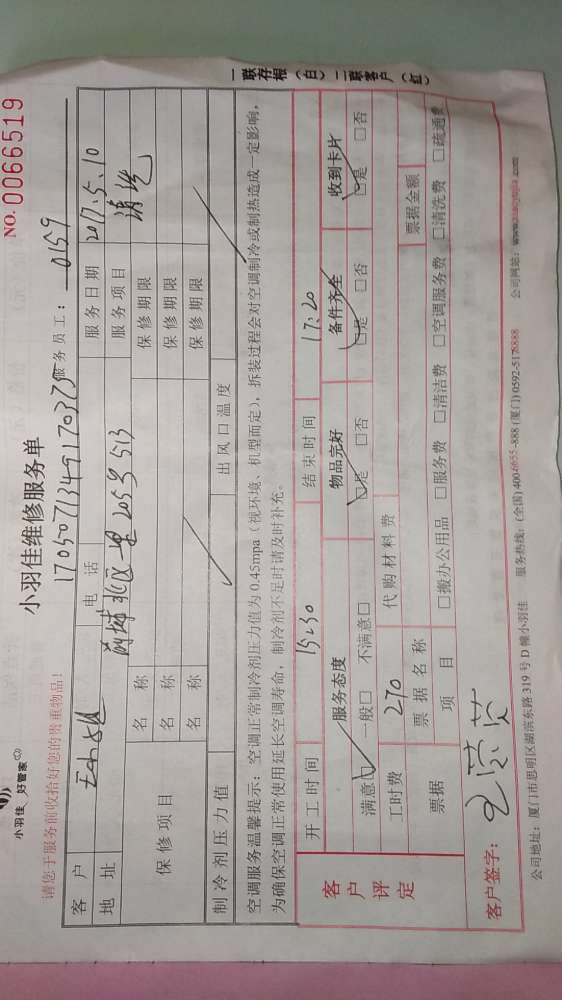 小羽佳 好管家
小羽佳维修服务单
NO. 0066519
请您于服务前收拾好您的贵重物品!
服务员工: 0159
客户
电话
服务日期 2017.5.10
地址
2053号513
服务项目 清洗
保修项目
名称 保修期限
名称 保修期限
名称 保修期限
制冷剂压力值
出风口温度
空调服务温馨提示:空调正常制冷剂压力值为0.45mpa(视环境、机型而定),拆装过程会对空调制冷或制热造成一定影响,
为确保空调正常使用延长空调寿命,制冷剂不足时请及时补充。
客户评定
开工时间 15:30 结束时间 17:20
服务态度 物品完好 备件齐全 收到卡片
满意□ 一般□ 不满意□ □是 □否 □是 □否 □是 □否
工时费 270 代购材料费
票据 票据名称 票据金额
项目 □搬办公用品 □服务费 □清洁费 □空调服务费 □清洗费 □疏通费
客户签字:
公司地址:厦门市思明区湖滨东路319号D幢小羽佳 服务热线:(全国)4006655-888 (厦门)0592-5178888 公司网站:www.xiaoyujia.com
一联存根(白) 二联客户(红)